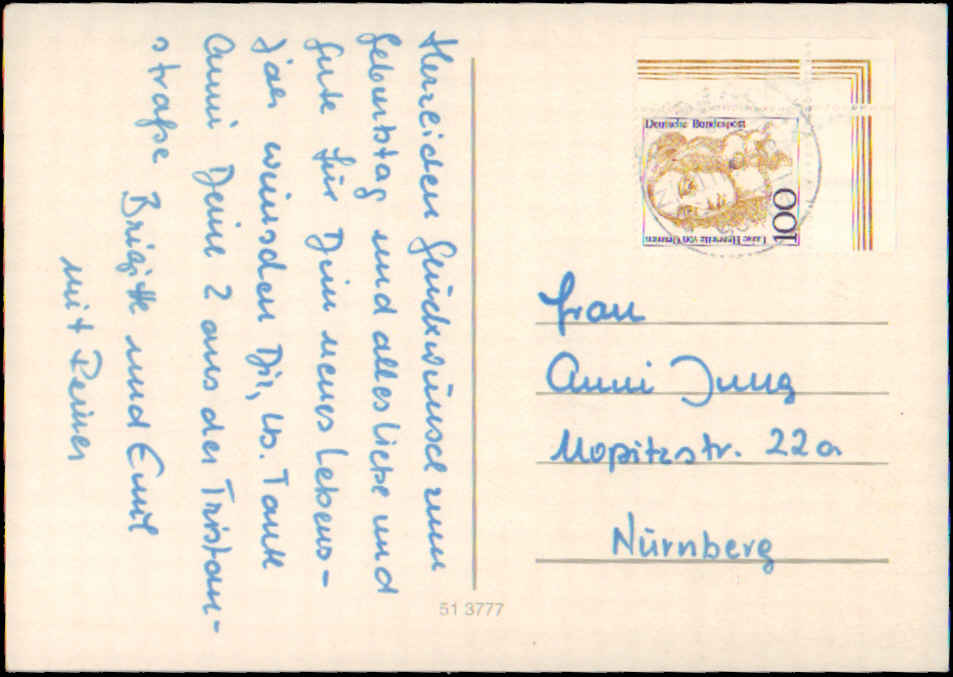 Herzlichen Glückwunsch zum
Geburtstag und alles Liebe und
Gute für Dein neues Lebens-
jahr wünschen Dir, lb. Tante
Anni Deine 2 aus der Tristan-
straße Brigitte und Emil
mit Reiner
Deutsche Bundespost
100
Frau
Anni Jung
Mopitzstr. 22a
Nürnberg
51 3777